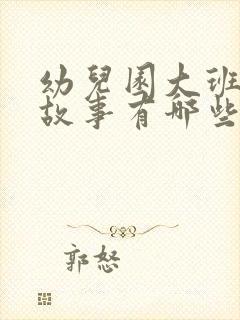 幼兒園大班
故事有哪些
郭怒